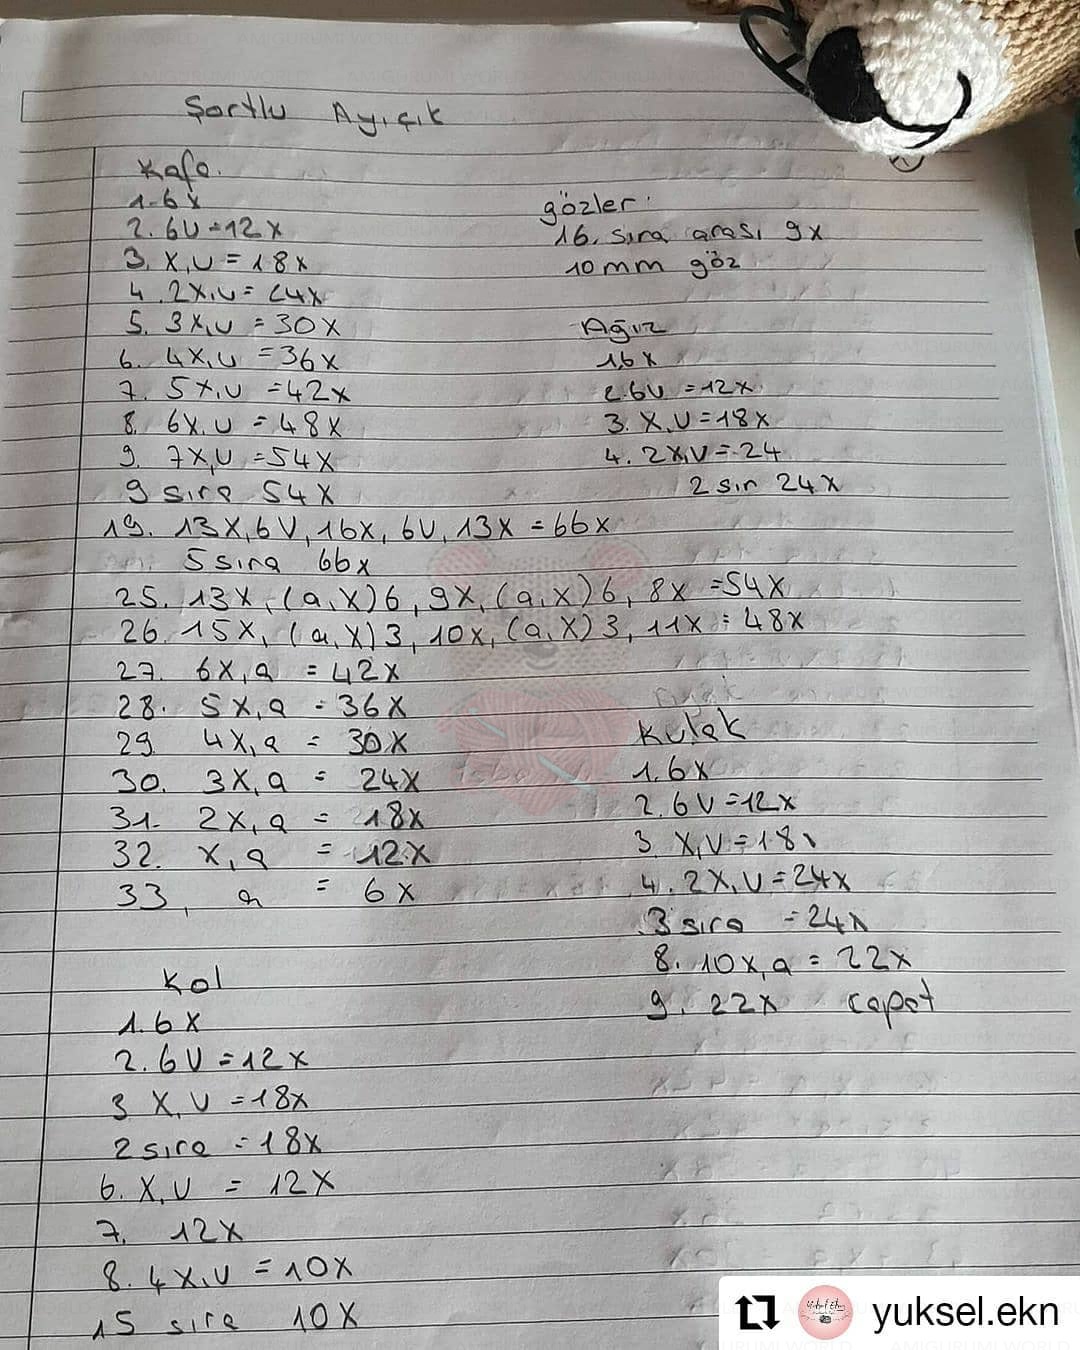 Şortlu Ayıçık
Kafa.
1-6x
2. 6U=12X
3. X,U=18x
4. 2X,U=24x
5. 3X,U=30X
6. 4X,U=36X
7. 5X,U=42X
8. 6X,U=48X
9. 7X,U=54X
9 sıra 54X
19. 13X,6V,16X,6U,13X=66X
5 sıra 66x
25. 13X,(a,X)6,9X,(a,X)6,8X=54X
26. 15X,(a,X)3,10X,(a,X)3,11X=48X
27. 6X,a=42X
28. 5X,a=36X
29 4X,a=30X
30. 3X,a=24X
31. 2X,a=18X
32. X,a=12X
33, a=6X
Kol
1.6X
2.6U=12X
3 X,U=18X
2 sıra=18X
6. X,U=12X
7. 12X
8. 4X,U=10X
15 sıra 10X
gözler:
16. sıra arası 9x
10mm göz
Ağız
1,6x
2.6U=12X
3. X,U=18X
4. 2X,V=24
2 sır 24X
Kulak
1.6X
2.6V=12X
3 X,V=18x
4. 2X,U=24X
3 sıra =24x
8. 10X,a=22X
9. 22X capat
yuksel.ekn